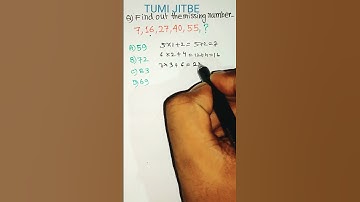 TUMI JITBE
Q) Find out the missing number
7, 16, 27, 40, 55, ?
A) 59
B) 72
C) 83
D) 69
5×1+2= 5+2=7
6×2+4=12+4=16
7×3+6=2